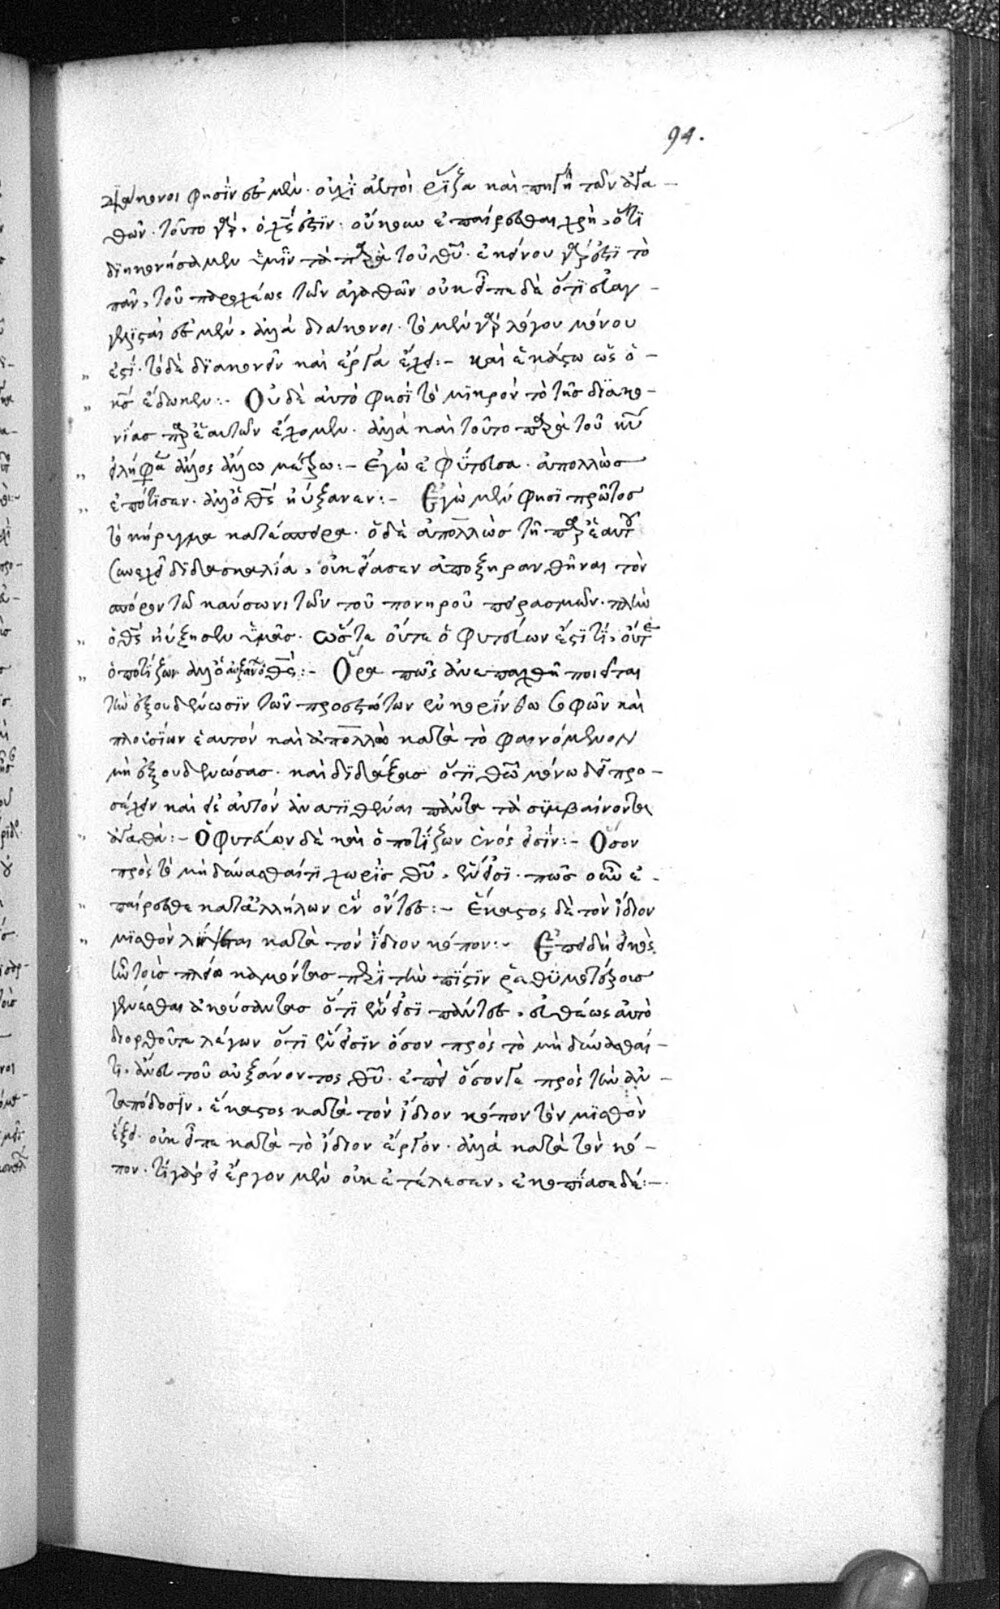 94.
διάκονοι φησίν ἐσμεν· οὐχὶ αὐτοὶ ῥίζα καὶ πηγὴ τῶν ἀγα-
θῶν· τοῦτο γάρ, ὁ χς ἐστιν· οὔκουν ἐπαίρεσθαι χρὴ, ὅτι
διηκονήσαμεν ὑμῖν τὰ παρὰ τοῦ θυ· ἐκείνου γάρ ἐστι τὸ
πᾶν, τοῦ παροχέως τῶν ἀγαθῶν οὐκ εἶπε δὲ ὅτι εὐαγ-
γελισταί ἐσμεν, ἀλλὰ διάκονοι· τὸ μὲν γὰρ λόγου μόνου
ἐστί· τὸ δὲ διακονεῖν καὶ ἔργα ἔχει:- καὶ ἑκάστω ὡς ὁ
κς ἔδωκεν:- Οὐδὲ αὐτό φησι τὸ μικρὸν τὸ τῆς διακο-
νίας παρ' ἑαυτῶν ἔχομεν· ἀλλὰ καὶ τοῦτο παρὰ τοῦ κυ
ἄλλος ἄλλω :- Ἐγὼ ἐφύτευσα· ἀπολλὼς
ἐπότισεν· ἀλλ' ὁ θς ηὔξανεν:- Ἐγὼ μέν φησι πρῶτος
τὸ κήρυγμα κατέσπειρα· ὁ δὲ ἀπολλὼς τῆ παρ' ἑαυτοῦ
συνεχεῖ διδασκαλία, οὐκ εἴασεν ἀποξηρανθῆναι τὸν
σπόρον τῶ καύσωνι τῶν τοῦ πονηροῦ πειρασμῶν· πλὴν
ὁ θς ηὔξησεν ὑμᾶς· ὥστε οὔτε ὁ φυτεύων ἐστί τι, οὔτε
ὁ ποτίζων ἀλλ' ὁ αὐξάνων θς:- Ὅρα πῶς ἀνεπαχθῆ ποιεῖται
τὴν ἐξουδένωσιν τῶν προεστώτων ἐν κορίνθω σοφῶν καὶ
πλουσίων ἑαυτὸν καὶ ἀπολλὼ κατὰ τὸ φαινόμενον
μὴ ἐξουδενώσας· καὶ διδάξας ὅτι θῶ μόνω δεῖ προ-
σέχειν καὶ εἰς αὐτὸν ἀνατιθέναι πάντα τὰ συμβαίνοντα
ἀγαθά:- Ὁ φυτεύων δὲ καὶ ὁ ποτίζων ἕν εἰσιν:- Ὅσον
πρὸς τὸ μὴ δύνασθαί τι χωρὶς θυ, ἕν εἰσι· πῶς οὖν ἐ-
παίρεσθε κατ' ἀλλήλων ἓν ὄντες:- Ἕκαστος δὲ τὸν ἴδιον
μισθὸν λήψεται κατὰ τὸν ἴδιον κόπον:- Ἐπειδὴ εἰκὸς
ἦν τοὺς πλέον καμόντας περὶ τὴν πίστιν ῥαθυμοτέρους
γενέσθαι ἀκούσαντας ὅτι ἕν εἰσι πάντες, εὐθέως αὐτὸ
διορθοῦται λέγων ὅτι ἕν εἰσιν ὅσον πρὸς τὸ μὴ δύνασθαί
τι, ἄνευ τοῦ αὐξάνοντος θυ· ἐπεὶ ὅσον γε πρὸς τὴν ἀν-
ταπόδοσιν, ἕκαστος κατὰ τὸν ἴδιον κόπον τὸν μισθὸν
ἕξει· οὐκ εἶπε κατὰ τὸ ἴδιον ἔργον· ἀλλὰ κατὰ τὸν κό-
πον· τί γὰρ εἰ ἔργον μὲν οὐκ ἐτέλεσεν, ἐκοπίασε δέ:-